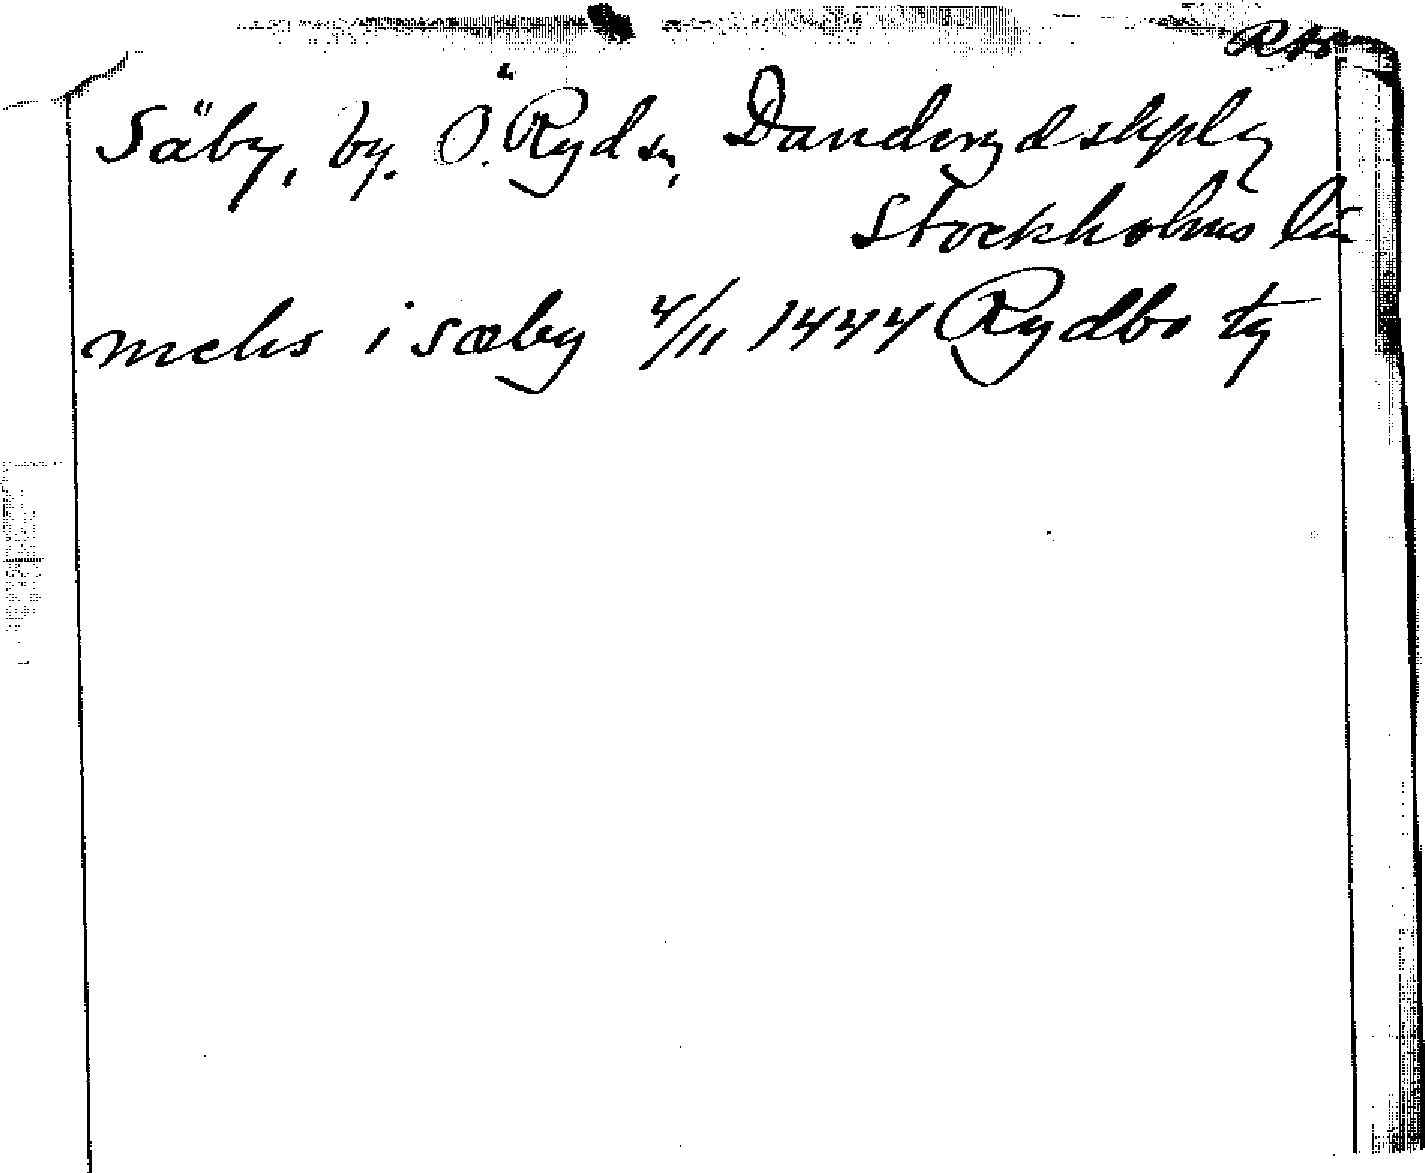 Säby, by. Ö. Ryd sn, Danderyds skplg
Stockholms län
mcks i sæby 4/11 1444 Rydbo ty